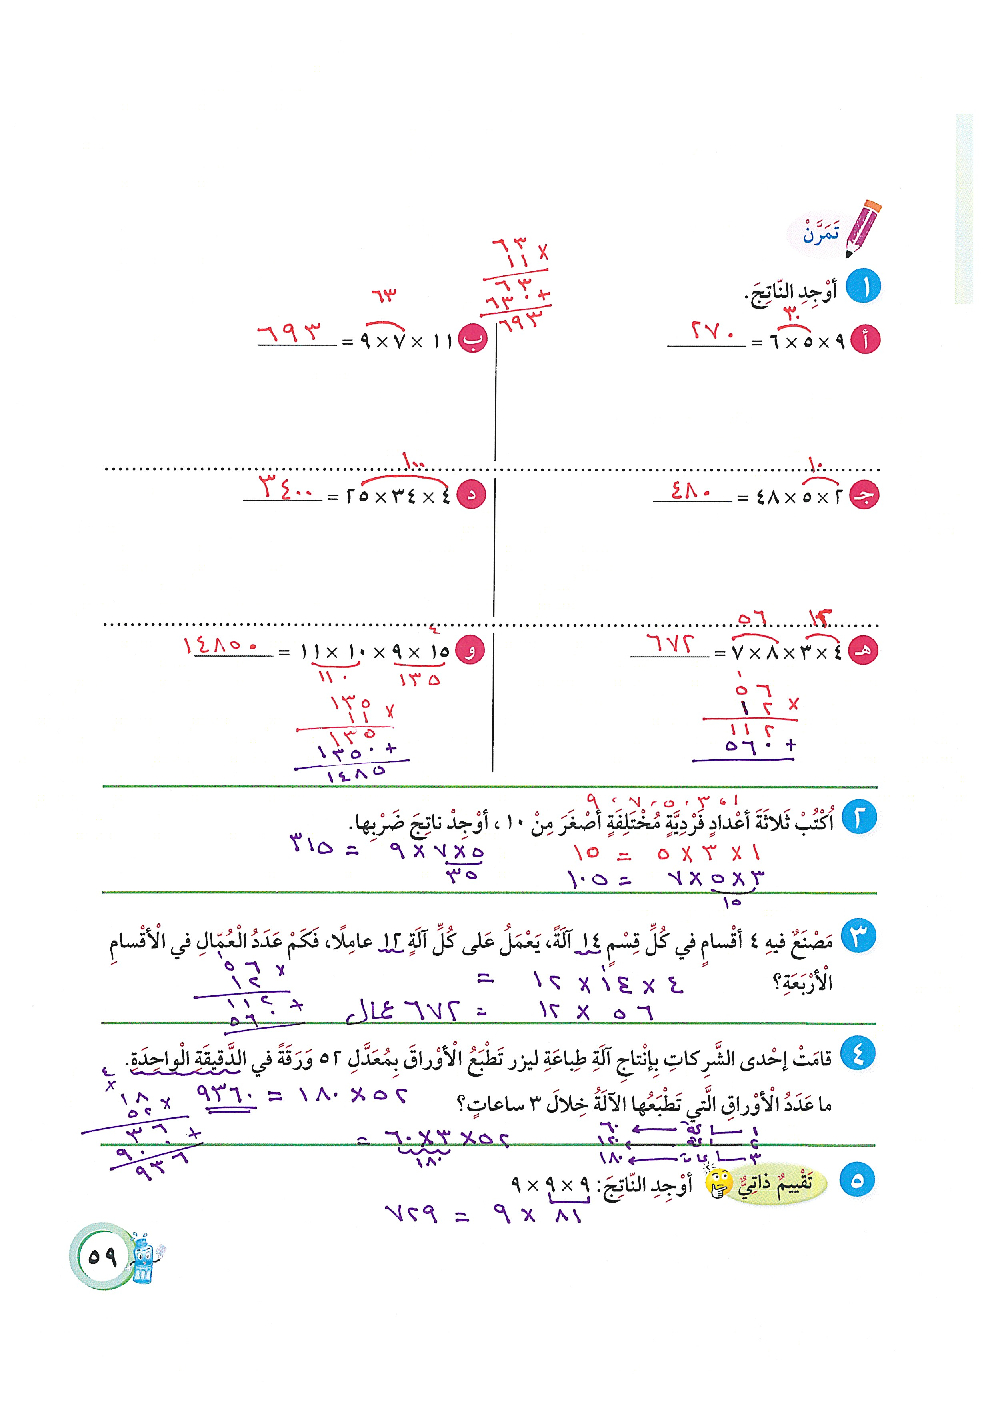 تَمَرَّنْ
١ أَوْجِدِ النّاتِجَ.
٦٣
× ١١
٦٣
+ ٦٣٠
٦٩٣
٣٠
أ ٩ × ٥ × ٦ = ٢٧٠
٦٣
ب ١١ × ٧ × ٩ = ٦٩٣
١٠
جـ ٢ × ٥ × ٤٨ = ٤٨٠
١٠٠
د ٤ × ٣٤ × ٢٥ = ٣٤٠٠
١٢ ٥٦
هـ ٤ × ٣ × ٨ × ٧ = ٦٧٢
١
٥٦
× ١٢
١١٢
+ ٥٦٠
٤
و ١٥ × ٩ × ١٠ × ١١ = ١٤٨٥٠
١٣٥ ١١٠
١٣٥
× ١١
١٣٥
+ ١٣٥٠
١٤٨٥
١ ، ٣ ، ٥ ، ٧ ، ٩
٢ اُكْتُبْ ثَلاثَةَ أَعْدادٍ فَرْدِيَّةٍ مُخْتَلِفَةٍ أَصْغَرَ مِنْ ١٠ ، أَوْجِدْ ناتِجَ ضَرْبِها.
١ × ٣ × ٥ = ١٥
٥ × ٧ × ٩ = ٣١٥
٣٥
٣ × ٥ × ٧ = ١٠٥
١٥
٣ مَصْنَعٌ فيهِ ٤ أَقْسامٍ في كُلِّ قِسْمٍ ١٤ آلَةً، يَعْمَلُ عَلى كُلِّ آلَةٍ ١٢ عامِلًا، فَكَمْ عَدَدُ الْعُمّالِ في الْأَقْسامِ
الْأَرْبَعَةِ؟
١
٤ × ١٤ × ١٢ =
٥٦ × ١٢ = ٦٧٢ عمال
١
٥٦
× ١٢
١١٢
+ ٥٦٠
٤ قامَتْ إِحْدى الشَّرِكاتِ بِإِنْتاجِ آلَةِ طِباعَةِ ليزر تَطْبَعُ الْأَوْراقَ بِمُعَدَّلِ ٥٢ وَرَقَةً في الدَّقيقَةِ الْواحِدَةِ.
ما عَدَدُ الْأَوْراقِ الَّتي تَطْبَعُها الآلَةُ خِلالَ ٣ ساعاتٍ؟
٥٢ × ١٨٠ = ٩٣٦٠
٤
×
١٨
× ٥٢
٣٦
+ ٩٠٠
٩٣٦
١ ساعة ← ٦٠
٢ ساعة ← ١٢٠
٣ ساعات ← ١٨٠
٥٢ × ٣ × ٦٠ =
١٨٠
٥ تَقْييمٌ ذاتِيٌّ أَوْجِدِ النّاتِجَ: ٩ × ٩ × ٩
٨١ × ٩ = ٧٢٩
٥٩